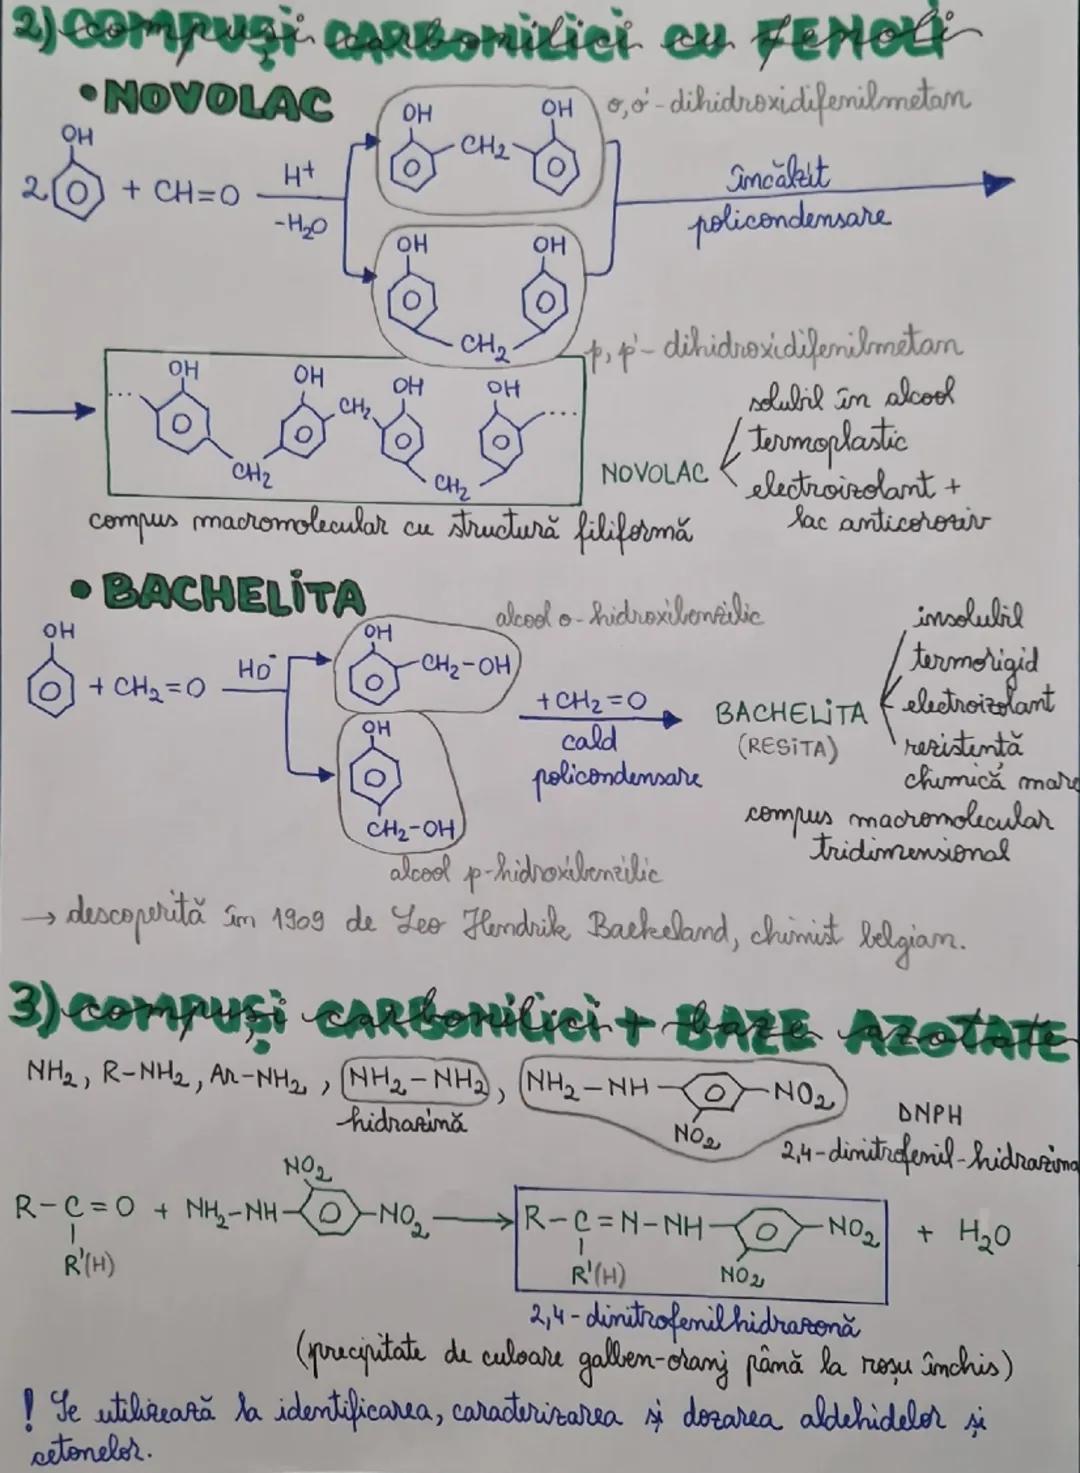 2) compuşi carbonilici cu FENOLi
• NOVOLAC
o,o'-dihidroxidifenilmetan
OH OH OH
2 + CH=O H+ -H₂O CH₂
încălzit
policondensare
OH OH
CH₂
p,p'-dihidroxidifenilmetan
OH OH OH OH
... CH₂ CH₂ CH₂ ...
NOVOLAC
solubil în alcool
termoplastic
electroizolant +
lac anticoroziv
compus macromolecular cu structură filiformă
• BACHELiTA
alcool o-hidroxibenzilic
OH + CH₂=O HO⁻
OH CH₂-OH
OH
CH₂-OH
alcool p-hidroxibenzilic
+CH₂=O
cald
policondensare
BACHELiTA
(RESiTA)
insolubil
termorigid
electroizolant
rezistență
chimică mare
compus macromolecular
tridimensional
→ descoperită în 1909 de Leo Hendrik Baekeland, chimist belgian.
3) compuşi carbonilici + BAZE AZOTATE
NH₂, R-NH₂, Ar-NH₂, NH₂-NH₂, NH₂-NH- -NO₂
hidrazină
NO₂
DNPH
2,4-dinitrofenil-hidrazina
NO₂
R-C=O + NH₂-NH- -NO₂ → R-C=N-NH- -NO₂ + H₂O
R'(H) R'(H) NO₂
2,4-dinitrofenilhidrazonă
(precipitate de culoare galben-oranj până la roşu închis)
! Se utilizează la identificarea, caracterizarea şi dozarea aldehidelor şi
cetonelor.